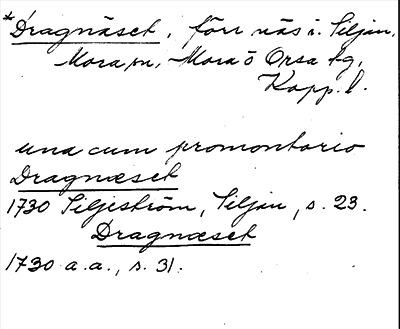 *Dragnäset, förr näs i Siljan,
Mora sn, Mora o Orsa tg,
Kopp. l.
una cum promontorio
Dragnæset
1730 Siljeström, Siljan, s. 23.
Dragnæset
1730 a.a., s. 31.